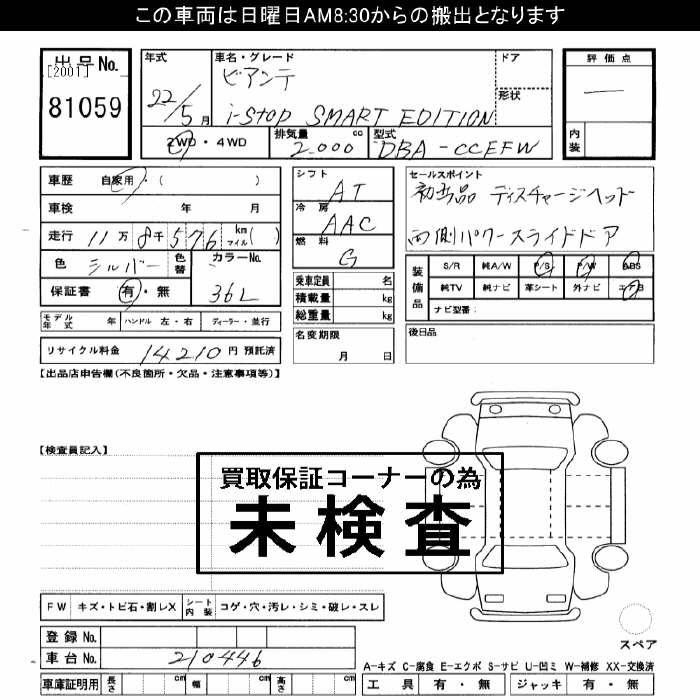 この車両は日曜日AM8:30からの搬出となります
出品No.
[2001]
81059
年式
22/5月
車名・グレード
ビアンテ
i-stop SMART EDITION
ドア
形状
2WD・4WD
排気量 cc
2.000
型式
DBA-CCEFW
評価点
—
内装
車歴 自家用・( )
車検 年 月
走行 11万8千576 km マイル( )
色 シルバー 色替
カラーNo.
36L
保証書 有・無
モデル年式 年 ハンドル 左・右 ディーラー・並行
リサイクル料金 14210円 預託済
シフト
AT
冷房
AAC
燃料
G
乗車定員 名
積載量 kg
総重量 kg
名変期限
月 日
セールスポイント
両側パワースライドドア
装備品
S/R 純A/W P/S P/W ABS
純TV 純ナビ 革シート 外ナビ エアB
ナビ型番:
後日品
【出品店申告欄(不良箇所・欠品・注意事項等)】
【検査員記入】
買取保証コーナーの為
未検査
FW キズ・トビ石・割レX シート内装 コゲ・穴・汚レ・シミ・破レ・スレ
登録No.
車台No. 210446
車庫証明用 長さ cm 幅 cm 高さ cm
スペア
A-キズ C-腐食 E-エクボ S-サビ U-凹ミ W-補修 XX-交換済
工具 有・無 ジャッキ 有・無